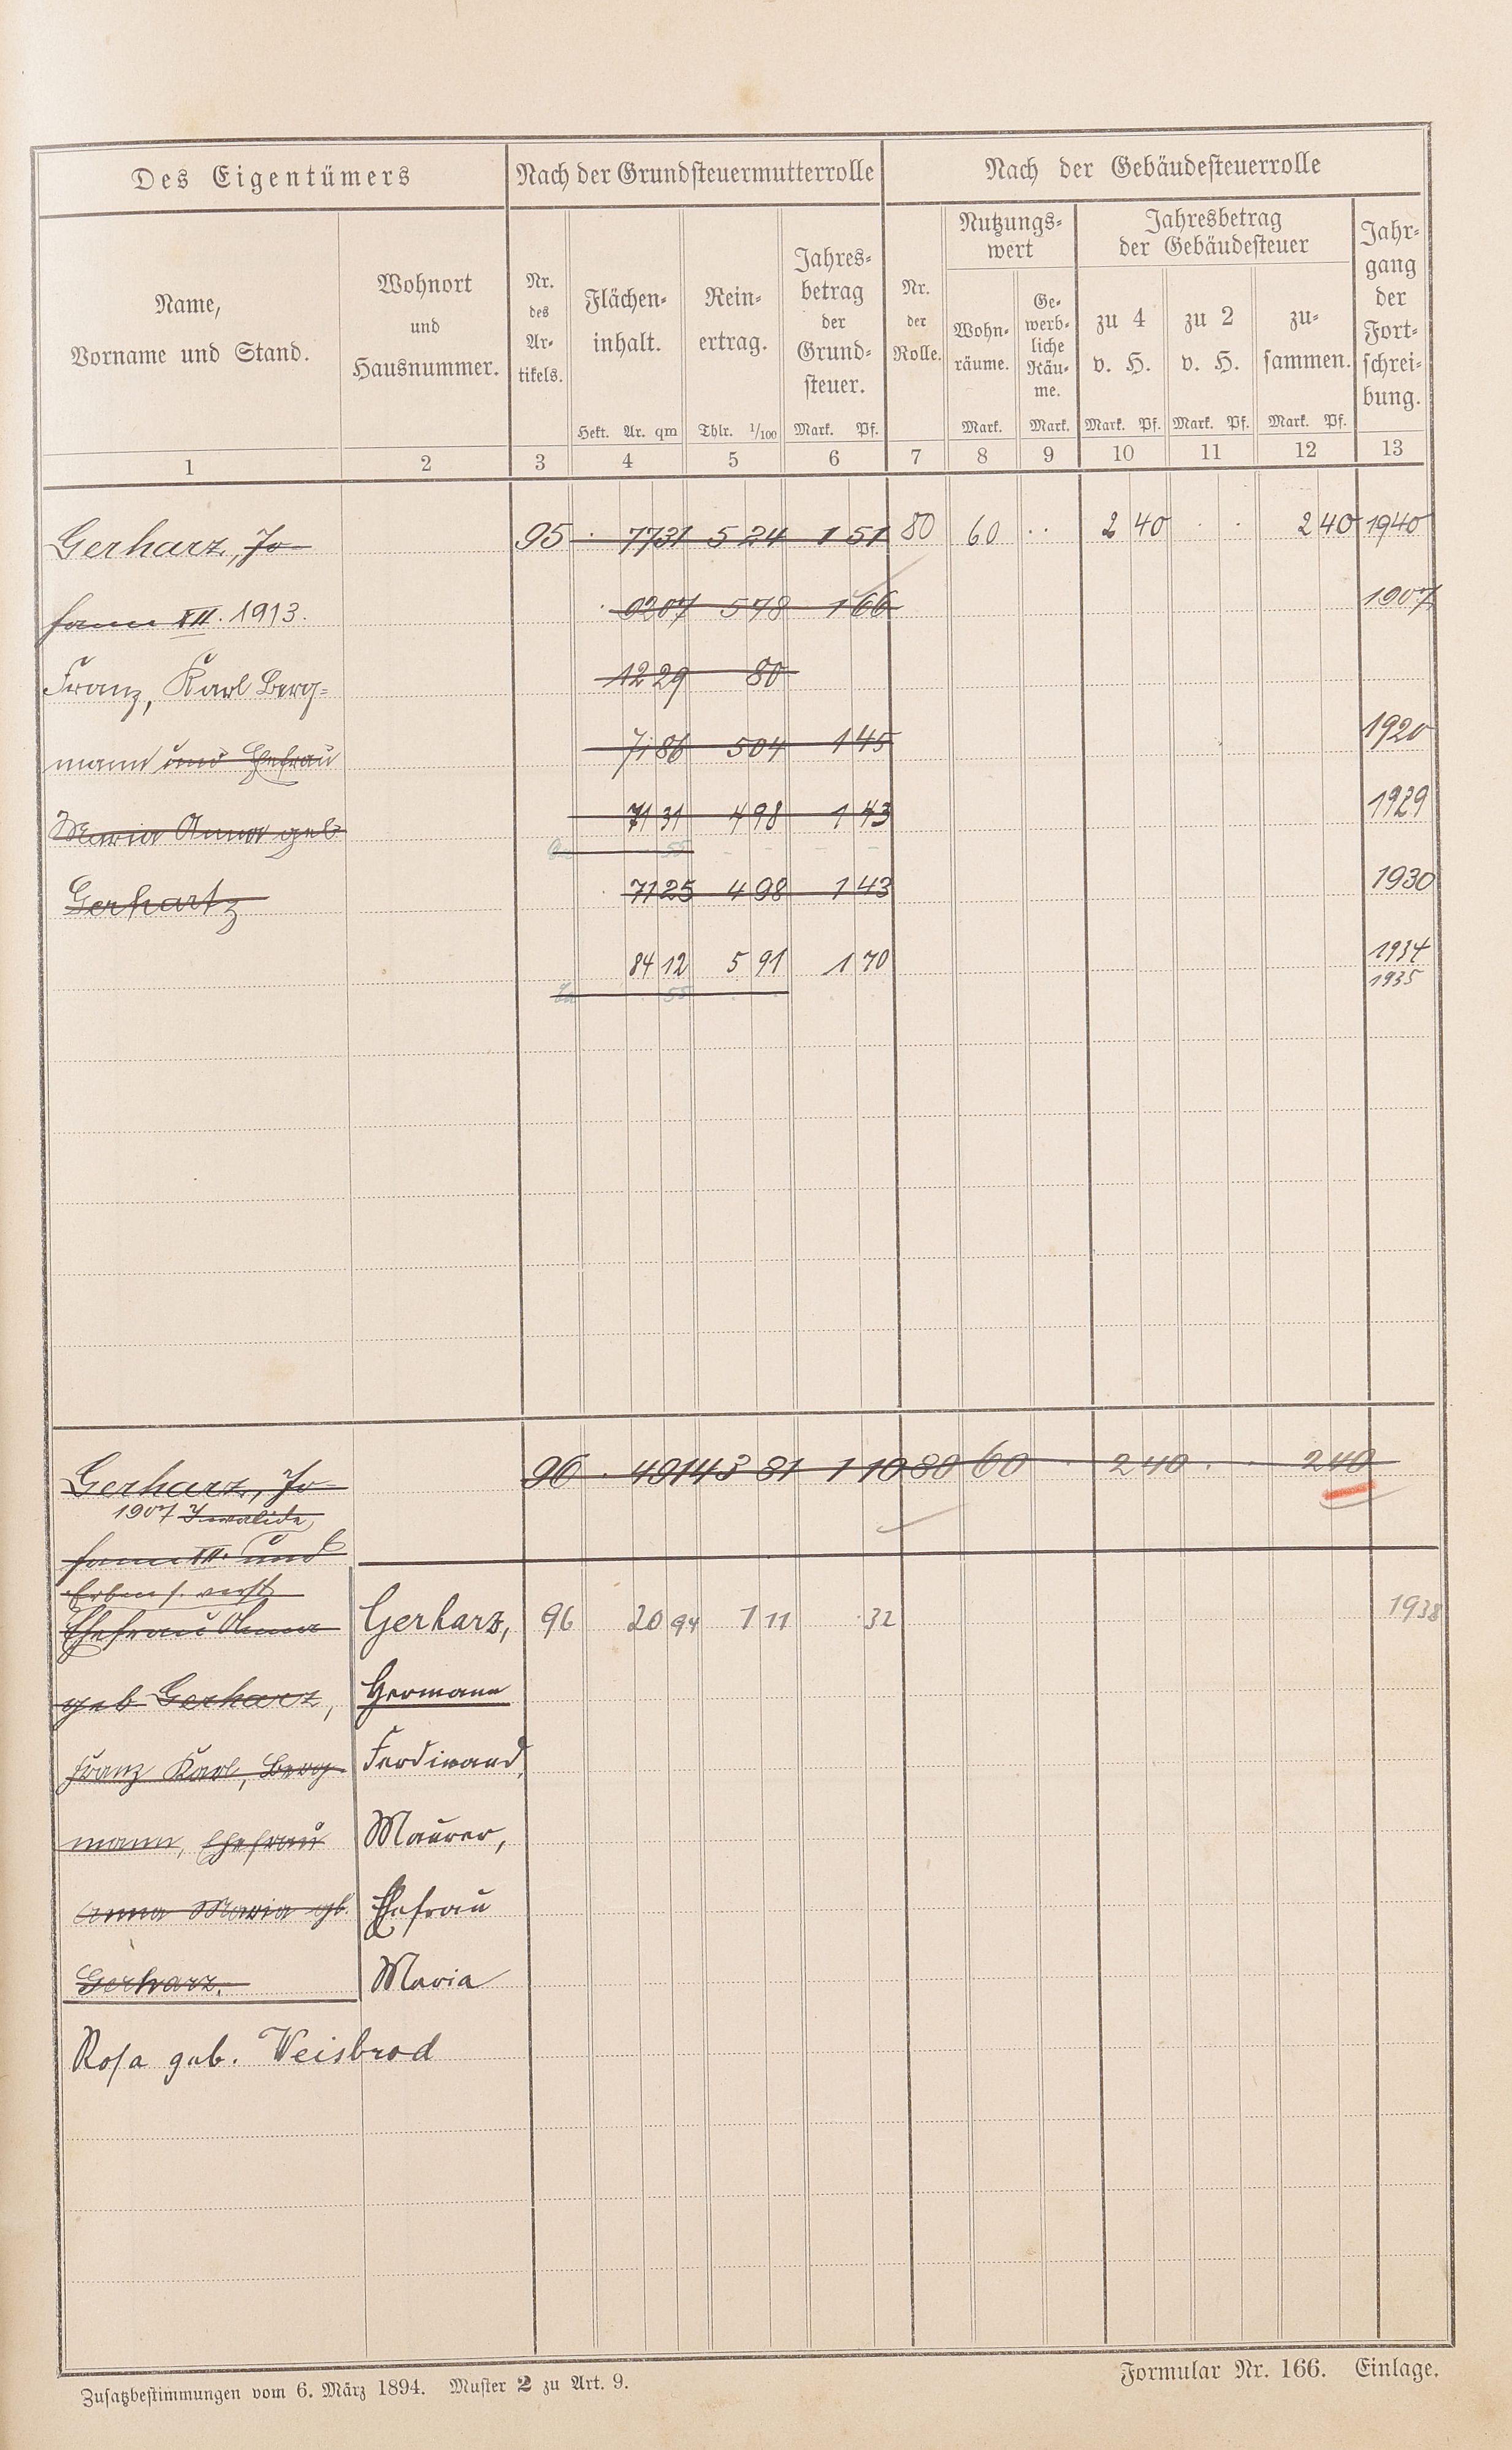 Des Eigentümers
Nach der Grundsteuermutterrolle
Nach der Gebäudesteuerrolle
Name,
Vorname und Stand.
Wohnort
und
Hausnummer.
Nr.
des
Ar-
tikels.
Flächen-
inhalt.
Hekt. Ar. qm
Rein-
ertrag.
Thlr. 1/100
Jahres-
betrag
der
Grund-
steuer.
Mark. Pf.
Nr.
der
Rolle.
Nutzungs-
wert
Wohn-
räume.
Mark.
Ge-
werb-
liche
Räu-
me.
Mark.
Jahresbetrag
der Gebäudesteuer
zu 4
v. H.
Mark. Pf.
zu 2
v. H.
Mark. Pf.
zu-
sammen.
Mark. Pf.
Jahr-
gang
der
Fort-
schrei-
bung.
1 2 3 4 5 6 7 8 9 10 11 12 13
Gerharz, Jo- 95 . 77 31 5 24 1 51 80 60 . . 2 40 . . 2 40 1940
hann XII. 1913. . 92 07 5 78 1 66 1907
Franz, Karl Berg- 12 29 80
mann und Ehefrau 71 86 5 04 1 45 1920
Maria Anna geb 71 31 4 98 1 43 1929
55
Gerhartz . 71 25 4 98 1 43 1930
84 12 5 91 1 70 1934
1935
55
Gerharz, Jo- 96 . 49 14 3 81 1 10 80 60 . 2 40 . . 2 40
1907 Invalide,
hann XII. und
Erben s. verst.
Ehefrau Anna Gerharz, 96 20 94 1 11 . 32 1938
geb Gerharz, Hermann
Franz Karl, Berg- Ferdinand,
mann, Ehefrau Maurer,
Anna Maria gb. Ehefrau
Gerharz. Maria
Rosa geb. Weisbrod
Zusatzbestimmungen vom 6. März 1894. Muster 2 zu Art. 9.
Formular Nr. 166. Einlage.